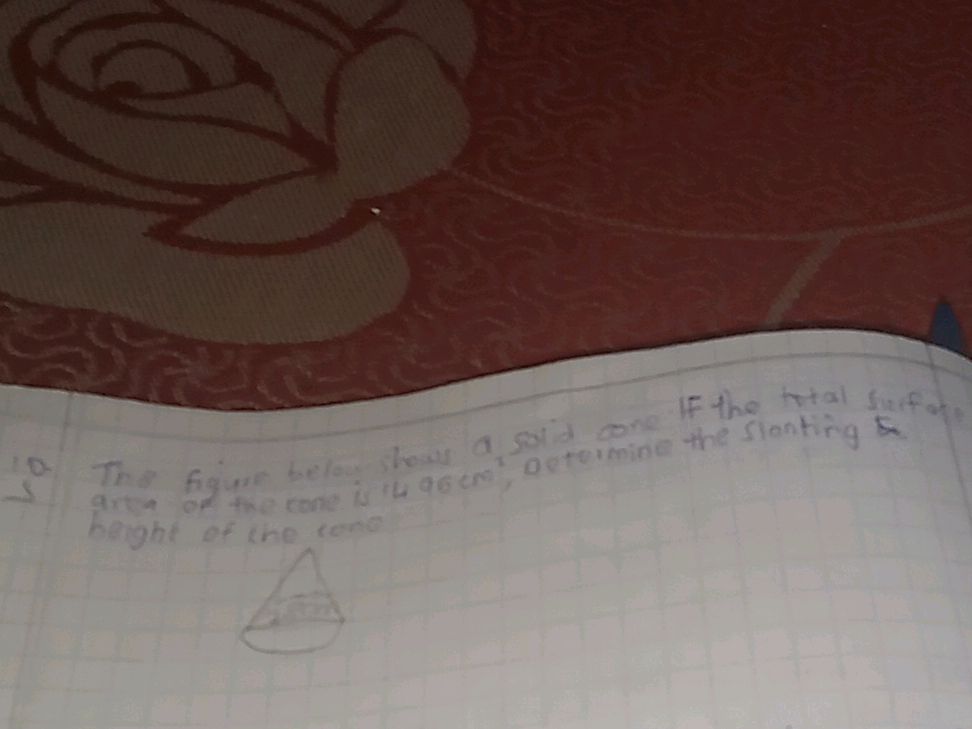 The figure below shows a solid cone IF the total surface
area of the cone is 1496cm², Determine the slanting
height of the cone